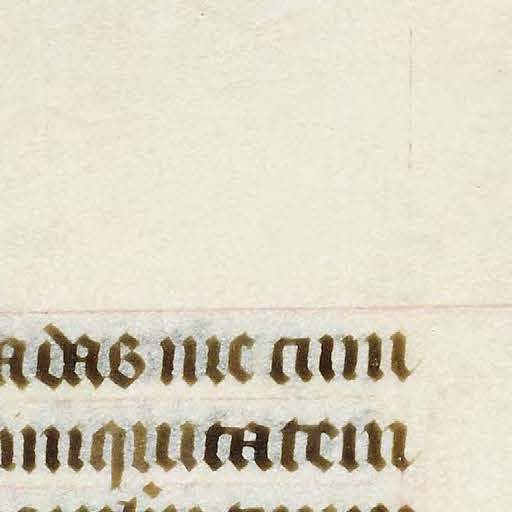 adas me cum
iniquitatem